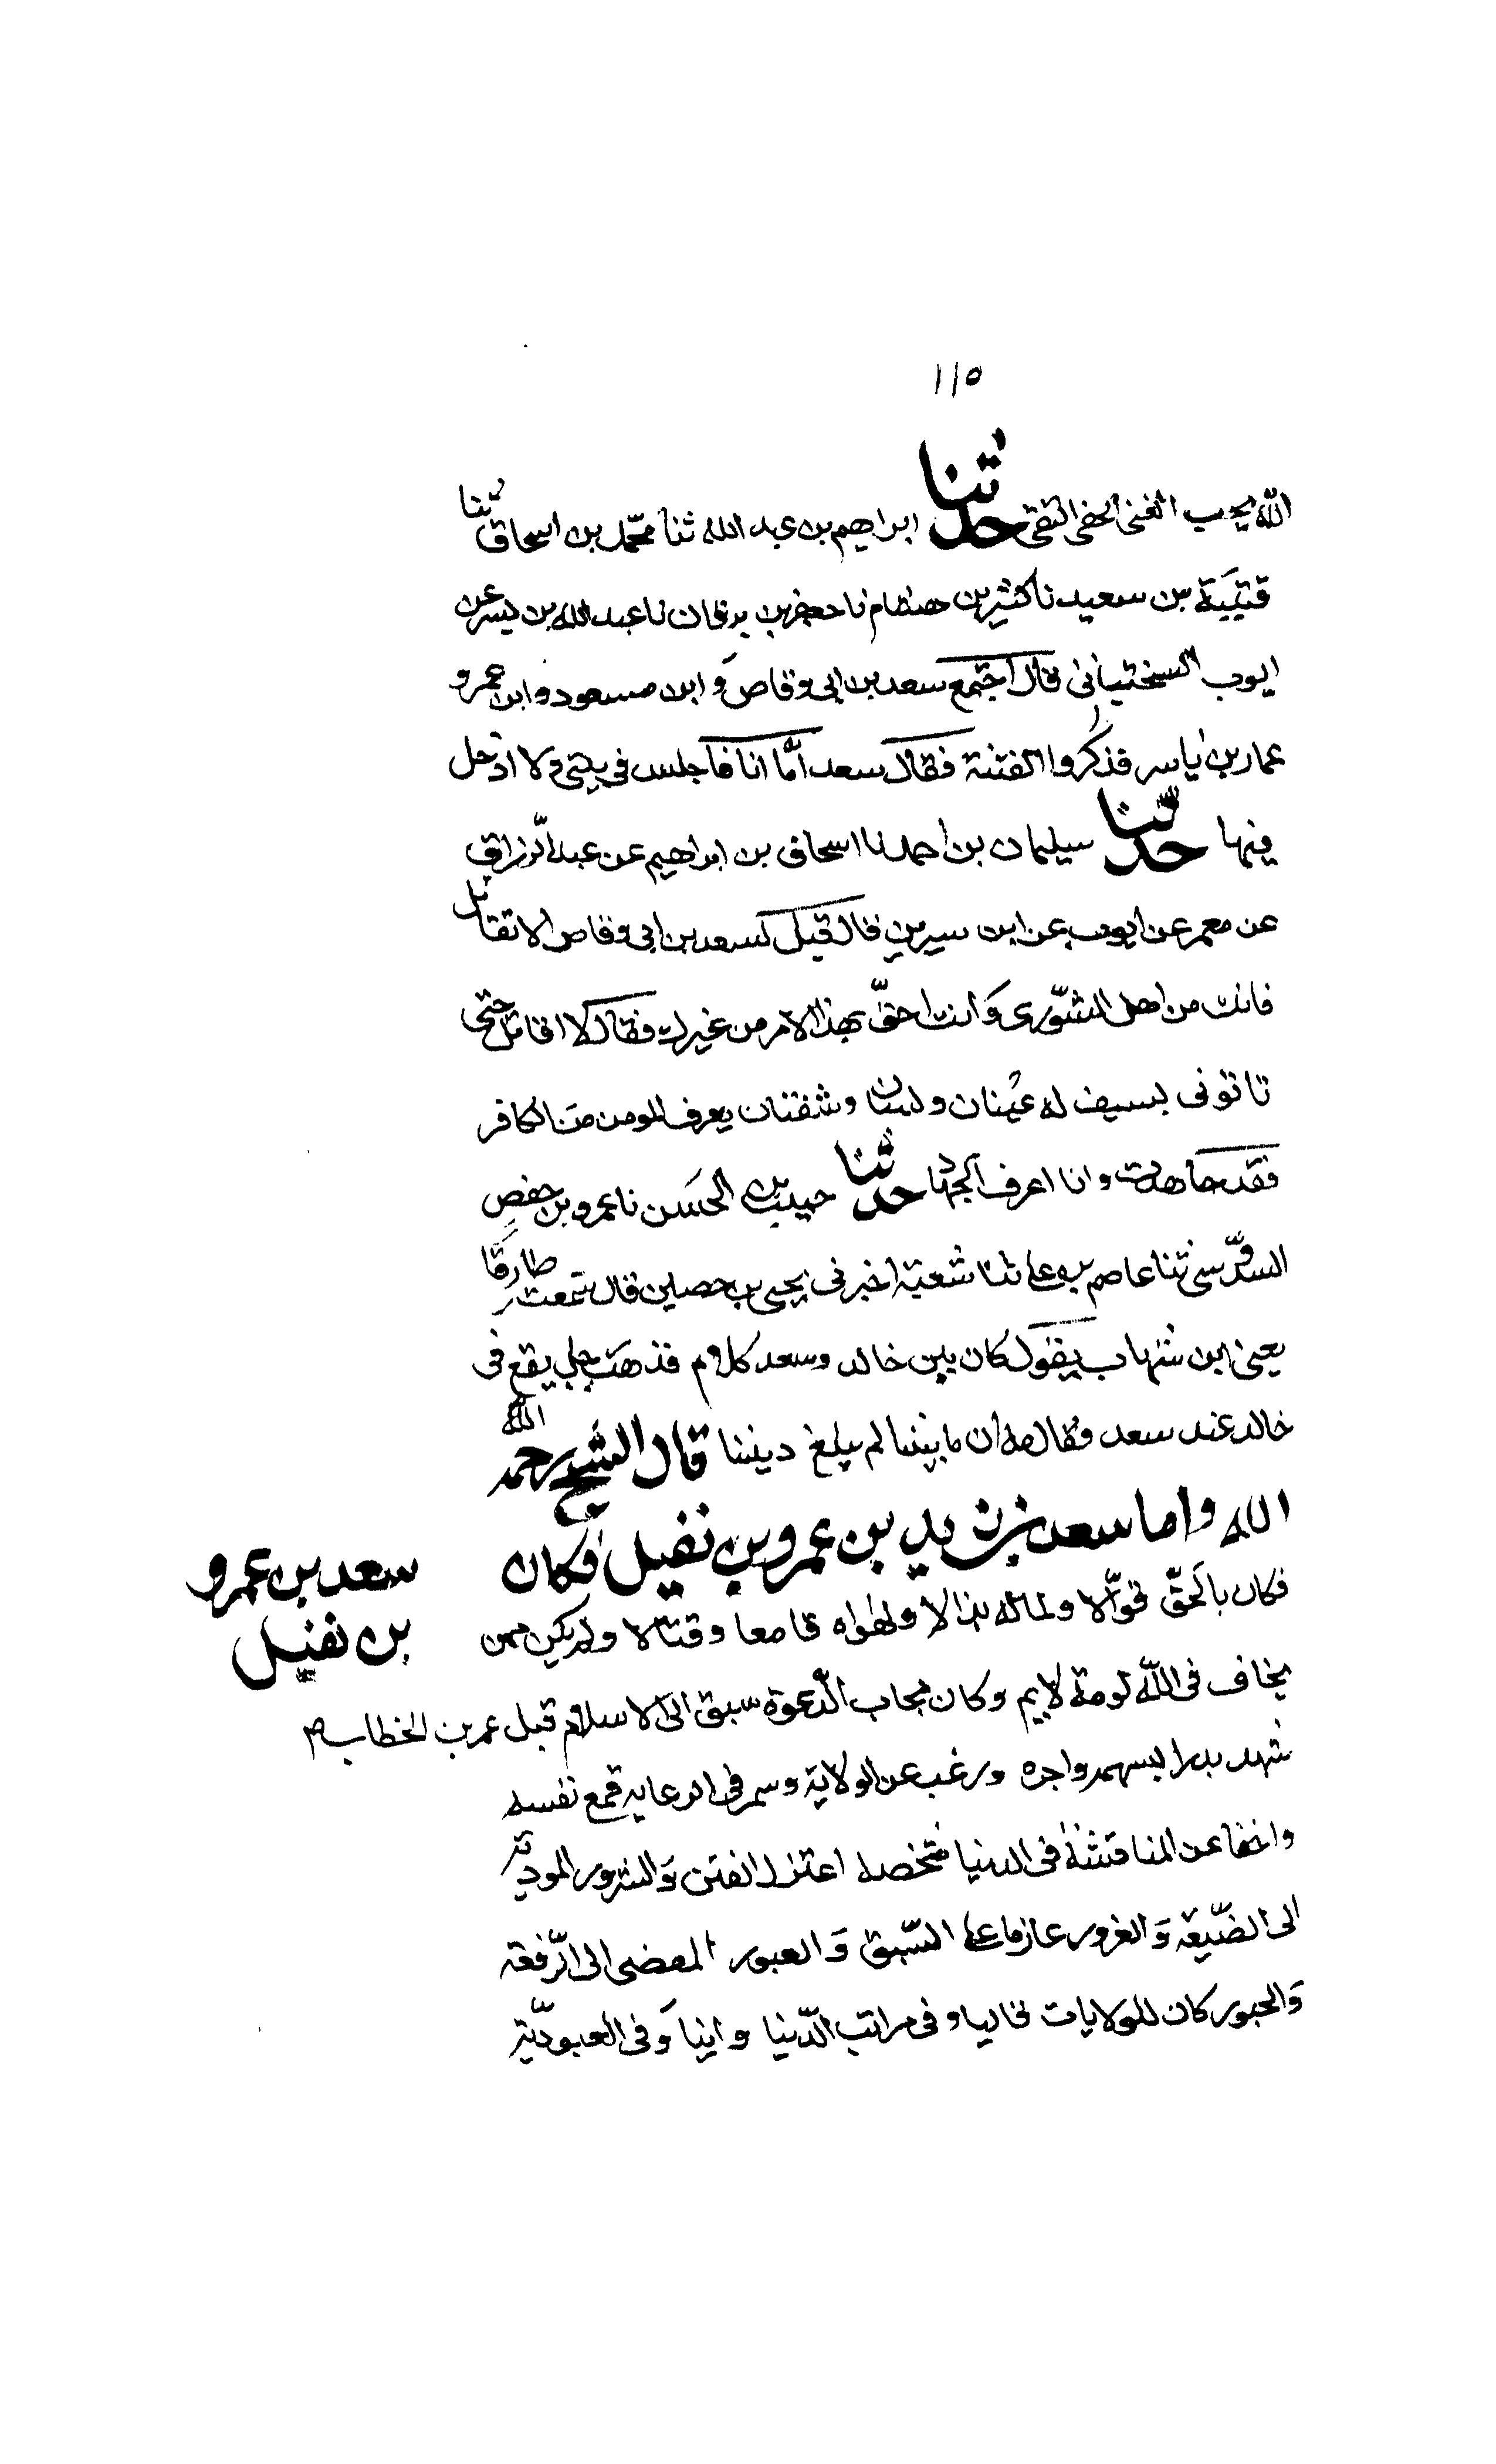 ١١٥
الله يحب الغنى الخفى التقى حدثنا ابراهيم بن عبد الله ثنا محمد بن اسحاق ثنا
قتيبة بن سعيد نا كثير بن هشام نا جعفر بن برقان نا عبد الله بن بسر عن
ايوب السختيانى قال اجتمع سعد بن ابى وقاص وابن مسعود وابن عمر و
عمار بن ياسر فذكروا الفتنة فقال سعد اما انا فاجلس فى بيتى ولا ادخل
فيها حدثنا سليمان بن احمد نا اسحاق بن ابراهيم عن عبد الرزاق
عن معمر عن ايوب عن ابن سيرين قال قيل لسعد بن ابى وقاص الا تقاتل
فانك من اهل الشورى وانت احق بهذا الامر من غيرك فقال لا اقاتل حتى
تاتونى بسيف له عينان ولسان وشفتان يعرف المومن من الكافر
فقد جاهدت وانا اعرف الجهاد حدثنا حبيب بن الحسن نا عمرو بن حفص
السدوسى ثنا عاصم بن على ثنا شعبة اخبرنى يحيى بن حصين قال سمعت طارقا
يعنى ابن شهاب يقول كان بين خالد وسعد كلام فذهب رجل يقع فى
خالد عند سعد فقال مه ان ما بيننا لم يبلغ ديننا قال الشيخ رحمه الله
الله واما سعد بن زيد بن عمرو بن نفيل فكان
سعد بن عمرو
بن نفيل
فكان بالحق قوالا ولماله بذالا ولهواه قامعا وقتالا ولم يكن ممن
يخاف فى الله لومة لايم وكان مجاب الدعوة سبق الى الاسلام قبل عمر بن الخطاب
شهد بدرا بسهمه واجره ورغب عن الولاية وسمر فى الرعاية قمع نفسه
واخفا عن المنافسة فى الدنيا شخصه اعتزل الفتن والشرور المودية
الى الضيعة والغرور عازما على السبق والعبور المفضى الى الرفعة
والحبور كان للولايات قاليا وفى مراتب الدنيا وانيا وفى العبودية